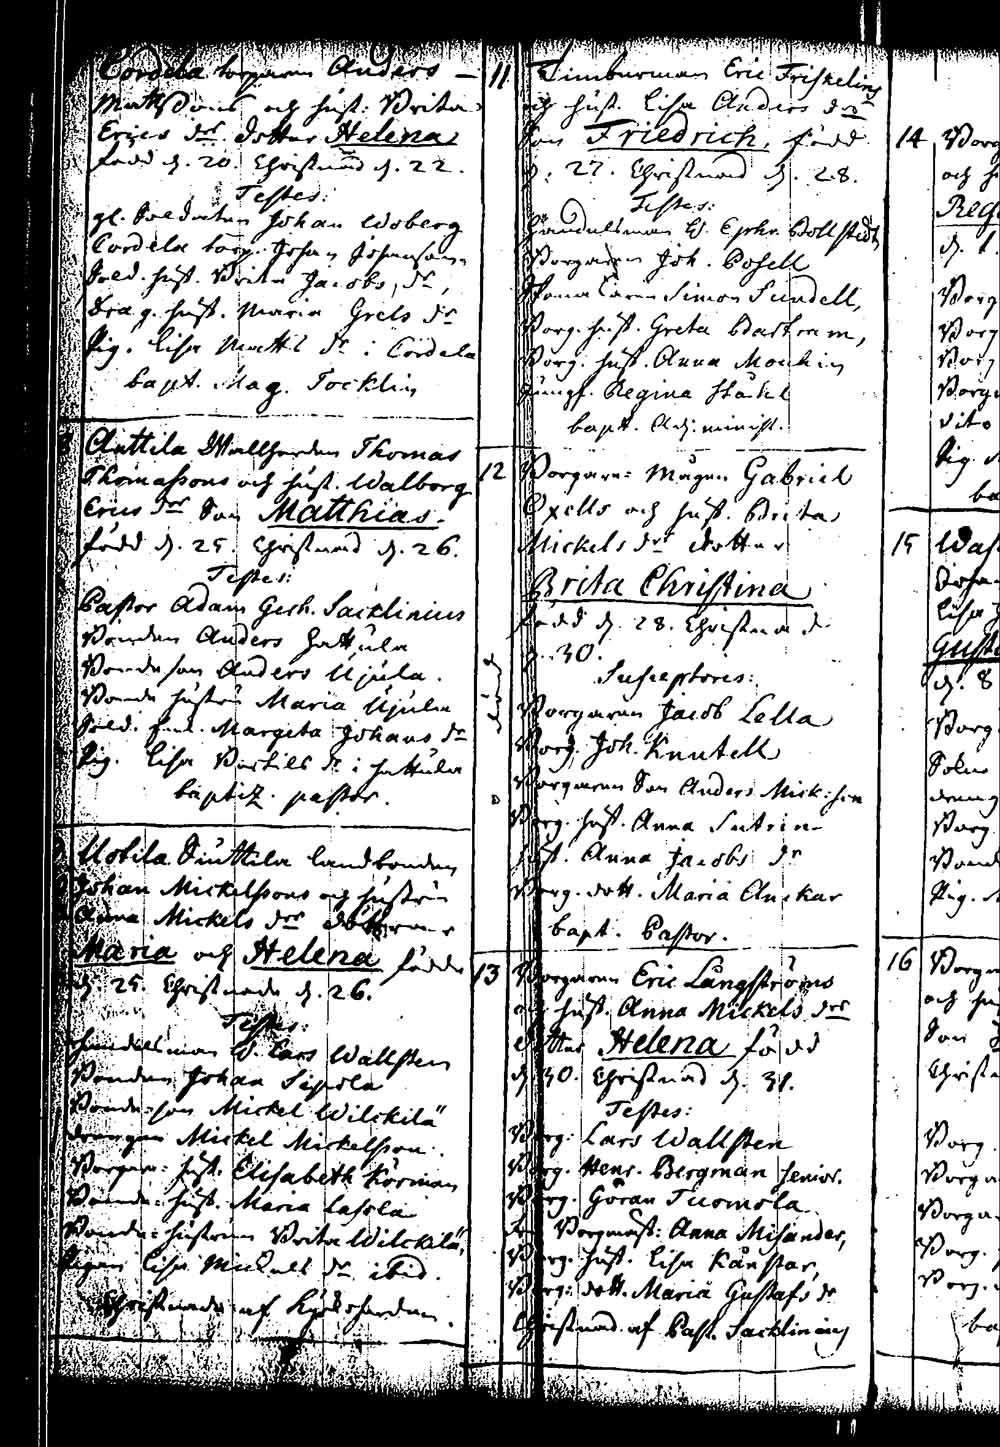 Cordela torparen Anders
Mattssons och hust: Brita
Erics dr dotter Helena
född d. 20. Christnad d. 22.
Testes:
gl. Soldaten Johan Woberg
Cordela torp. Johan Johansson
Sold. hust. Brita Jacobs dr,
Drag. hust. Maria Grels dr
Pig. Lisa Matts dr i Cordela
bapt. Mag. Tocklin
Anttila Wallherden Thomas
Thomassons och hust. Walborg
Erics dr Son Matthias.
född d. 25. Christnad d. 26.
Testes:
Pastor Adam Gerh. Sacklinius
Bonden Anders Hattula
Bonde son Anders Ujula.
Bonde hustru Maria Ujula
Sold. Margeta Johans dr
Pig. Lisa Bertils dr i Hattula
baptiz. pastor.
Uotila Suttila landbonden
Johan Mickelssons och hustru
Anna Mickels dr döttrar
Maria och Helena födde
d. 25. Christnade d. 26.
Testes:
Handelsman W. Lars Wallsten
Bonden Johan Sipola
Bonde-son Mickel Wilckilä
drengen Mickel Mickelsson.
Borgare-hust. Elisabeth Körman
Bonde-hust. Maria Lassla
Bonde-hustrun Brita Wilckilä,
Pigan Lisa Mickels dr ibid.
Christnade af Kyrckoherden.
11 Timberman Eric Friskelins
och hust. Lisa Anders dr
Son Friedrich, född
d. 27. Christnad d. 28.
Testes:
Handelsman W. Ephr. Bollstedt
Borgaren Joh. Posell
Simon Sundell,
Borg. hust. Greta Bartram,
Borg. hust. Anna Monkin
Jungf. Regina Ståhl
bapt. Adj. minist.
12 Borgare-Mågen Gabriel
Oxells och hust. Brita
Mickels dr dotter
Brita Christina
född d. 28. Christnad
d. 30.
Susceptores:
Borgaren Jacob Lella
Borg. Joh. Knutell
Borgaren Son Anders Mick:son
Borg. hust. Anna
hust. Anna Jacobs dr
Borg. dott. Maria Anckar
bapt. Pastor.
död
13 Borgaren Eric Långströms
och hust. Anna Mickels dr
dotter Helena född
d. 30. Christnad d. 31.
Testes:
Borg: Lars Wallsten
Borg. Henr. Bergman senior.
Borg. Göran Tuomola
Borgmäst: Anna Misander,
Borg. hust. Lisa Kånstar,
Borg: dott. Maria Gustafs dr
Christnad af Past. Sacklinius
14 Borg
och h
Reg
d. 1.
Borg
Borg
Borg
Borg
dito
Pig. M
ba
15 Was
Johan
Lisa
Gust
d. 8
Borg.
Sokn
dreng
Borg.
Bond
Pig. M
16 Borg
och hu
Son
Christ
Borg.
Borga
Borga
Borg.
Borg.
ba